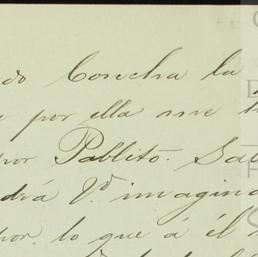 do Concha la
por ella me
por Pablito. Sa
drá V. imagina
por lo que á él